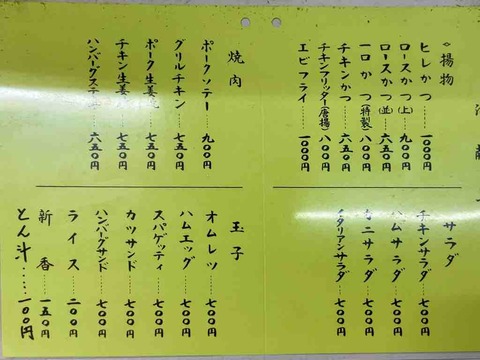 揚物
ヒレかつ……一〇〇〇円
ロースかつ(上)……九〇〇円
ロースかつ(並)……六五〇円
一口かつ(特製)……八〇〇円
チキンかつ……六五〇円
チキンフリッター(唐揚)八〇〇円
エビフライ……一〇五〇円
サラダ
チキンサラダ……七〇〇円
ハムサラダ……七〇〇円
カニサラダ……七〇〇円
イタリアンサラダ……七〇〇円
焼肉
ポークソテー……九〇〇円
グリルチキン……七五〇円
ポーク生姜焼……七五〇円
チキン生姜……七五〇円
ハンバーグステーキ……六五〇円
玉子
オムレツ……七〇〇円
ハムエッグ……七〇〇円
スパゲッティ……七〇〇円
カツサンド……七〇〇円
ハンバーグサンド……七〇〇円
ライス……二〇〇円
新香……一五〇円
とん汁……一〇〇円